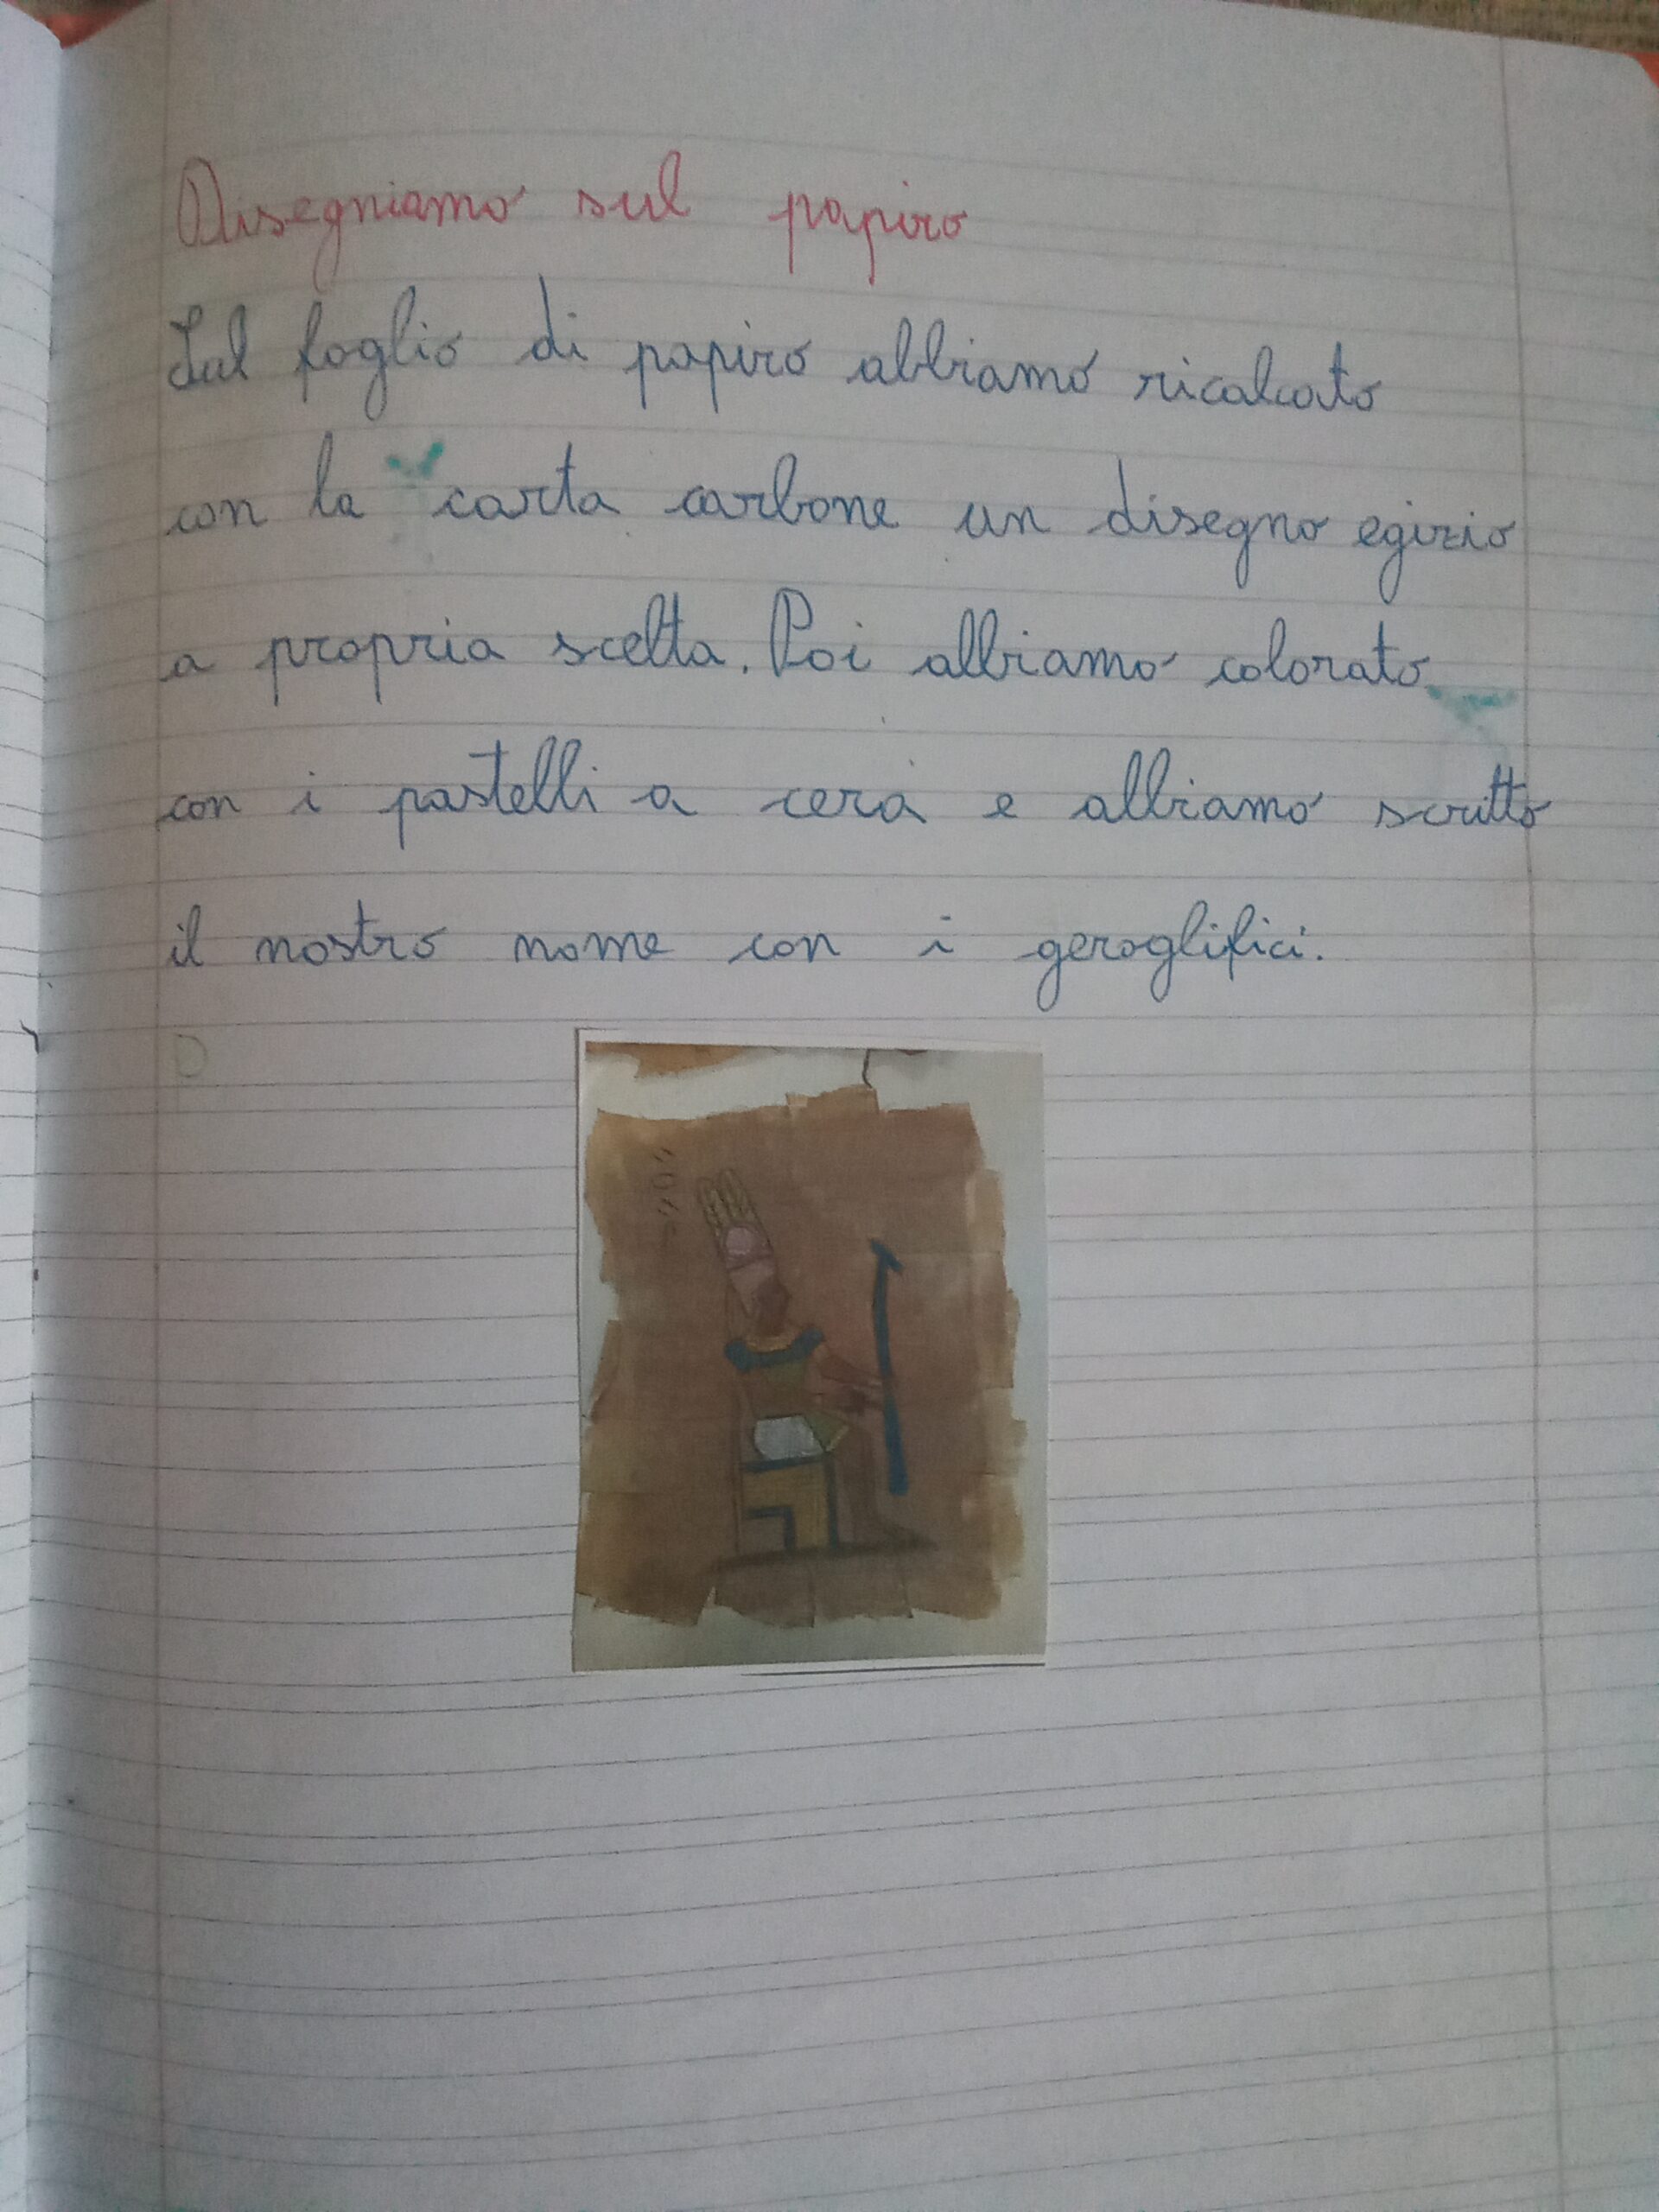 Disegniamo sul papiro
Sul foglio di papiro abbiamo ricalcato
con la carta carbone un disegno egizio
a propria scelta. Poi abbiamo colorato
con i pastelli a cera e abbiamo scritto
il nostro nome con i geroglifici.